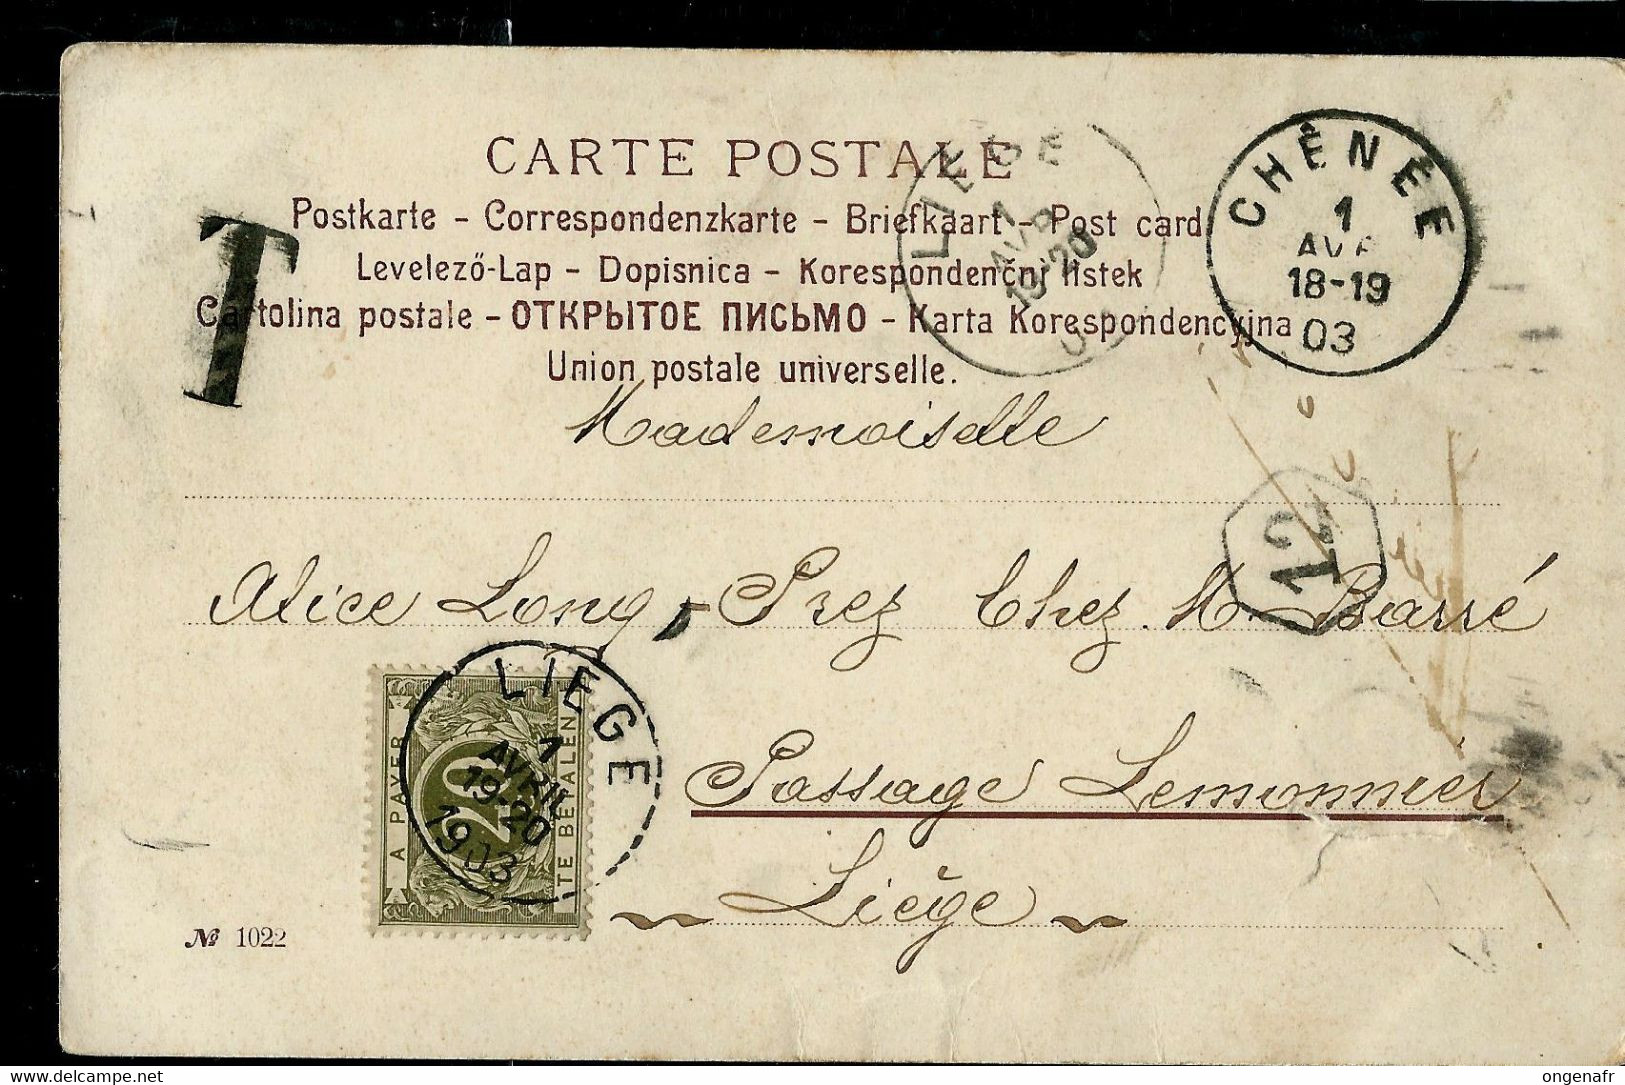 CARTE POSTALE
Postkarte - Correspondenzkarte - Briefkaart - Post card
Levelező-Lap - Dopisnica - Korespondenčni listek
Cartolina postale - ОТКРЫТОЕ ПИСЬМО - Karta Korespondencyjna
Union postale universelle.
T
LIEGE
1
AVR
19-20
CHÊNÉE
1
AVR
18-19
03
Mademoiselle
12
Alice Long, Prez Chez M Barré
Passage Lemonnier
Liège
A PAYER
20
TE BETALEN
LIEGE
1
AVRIL
19-20
1903
№ 1022
ongenafr